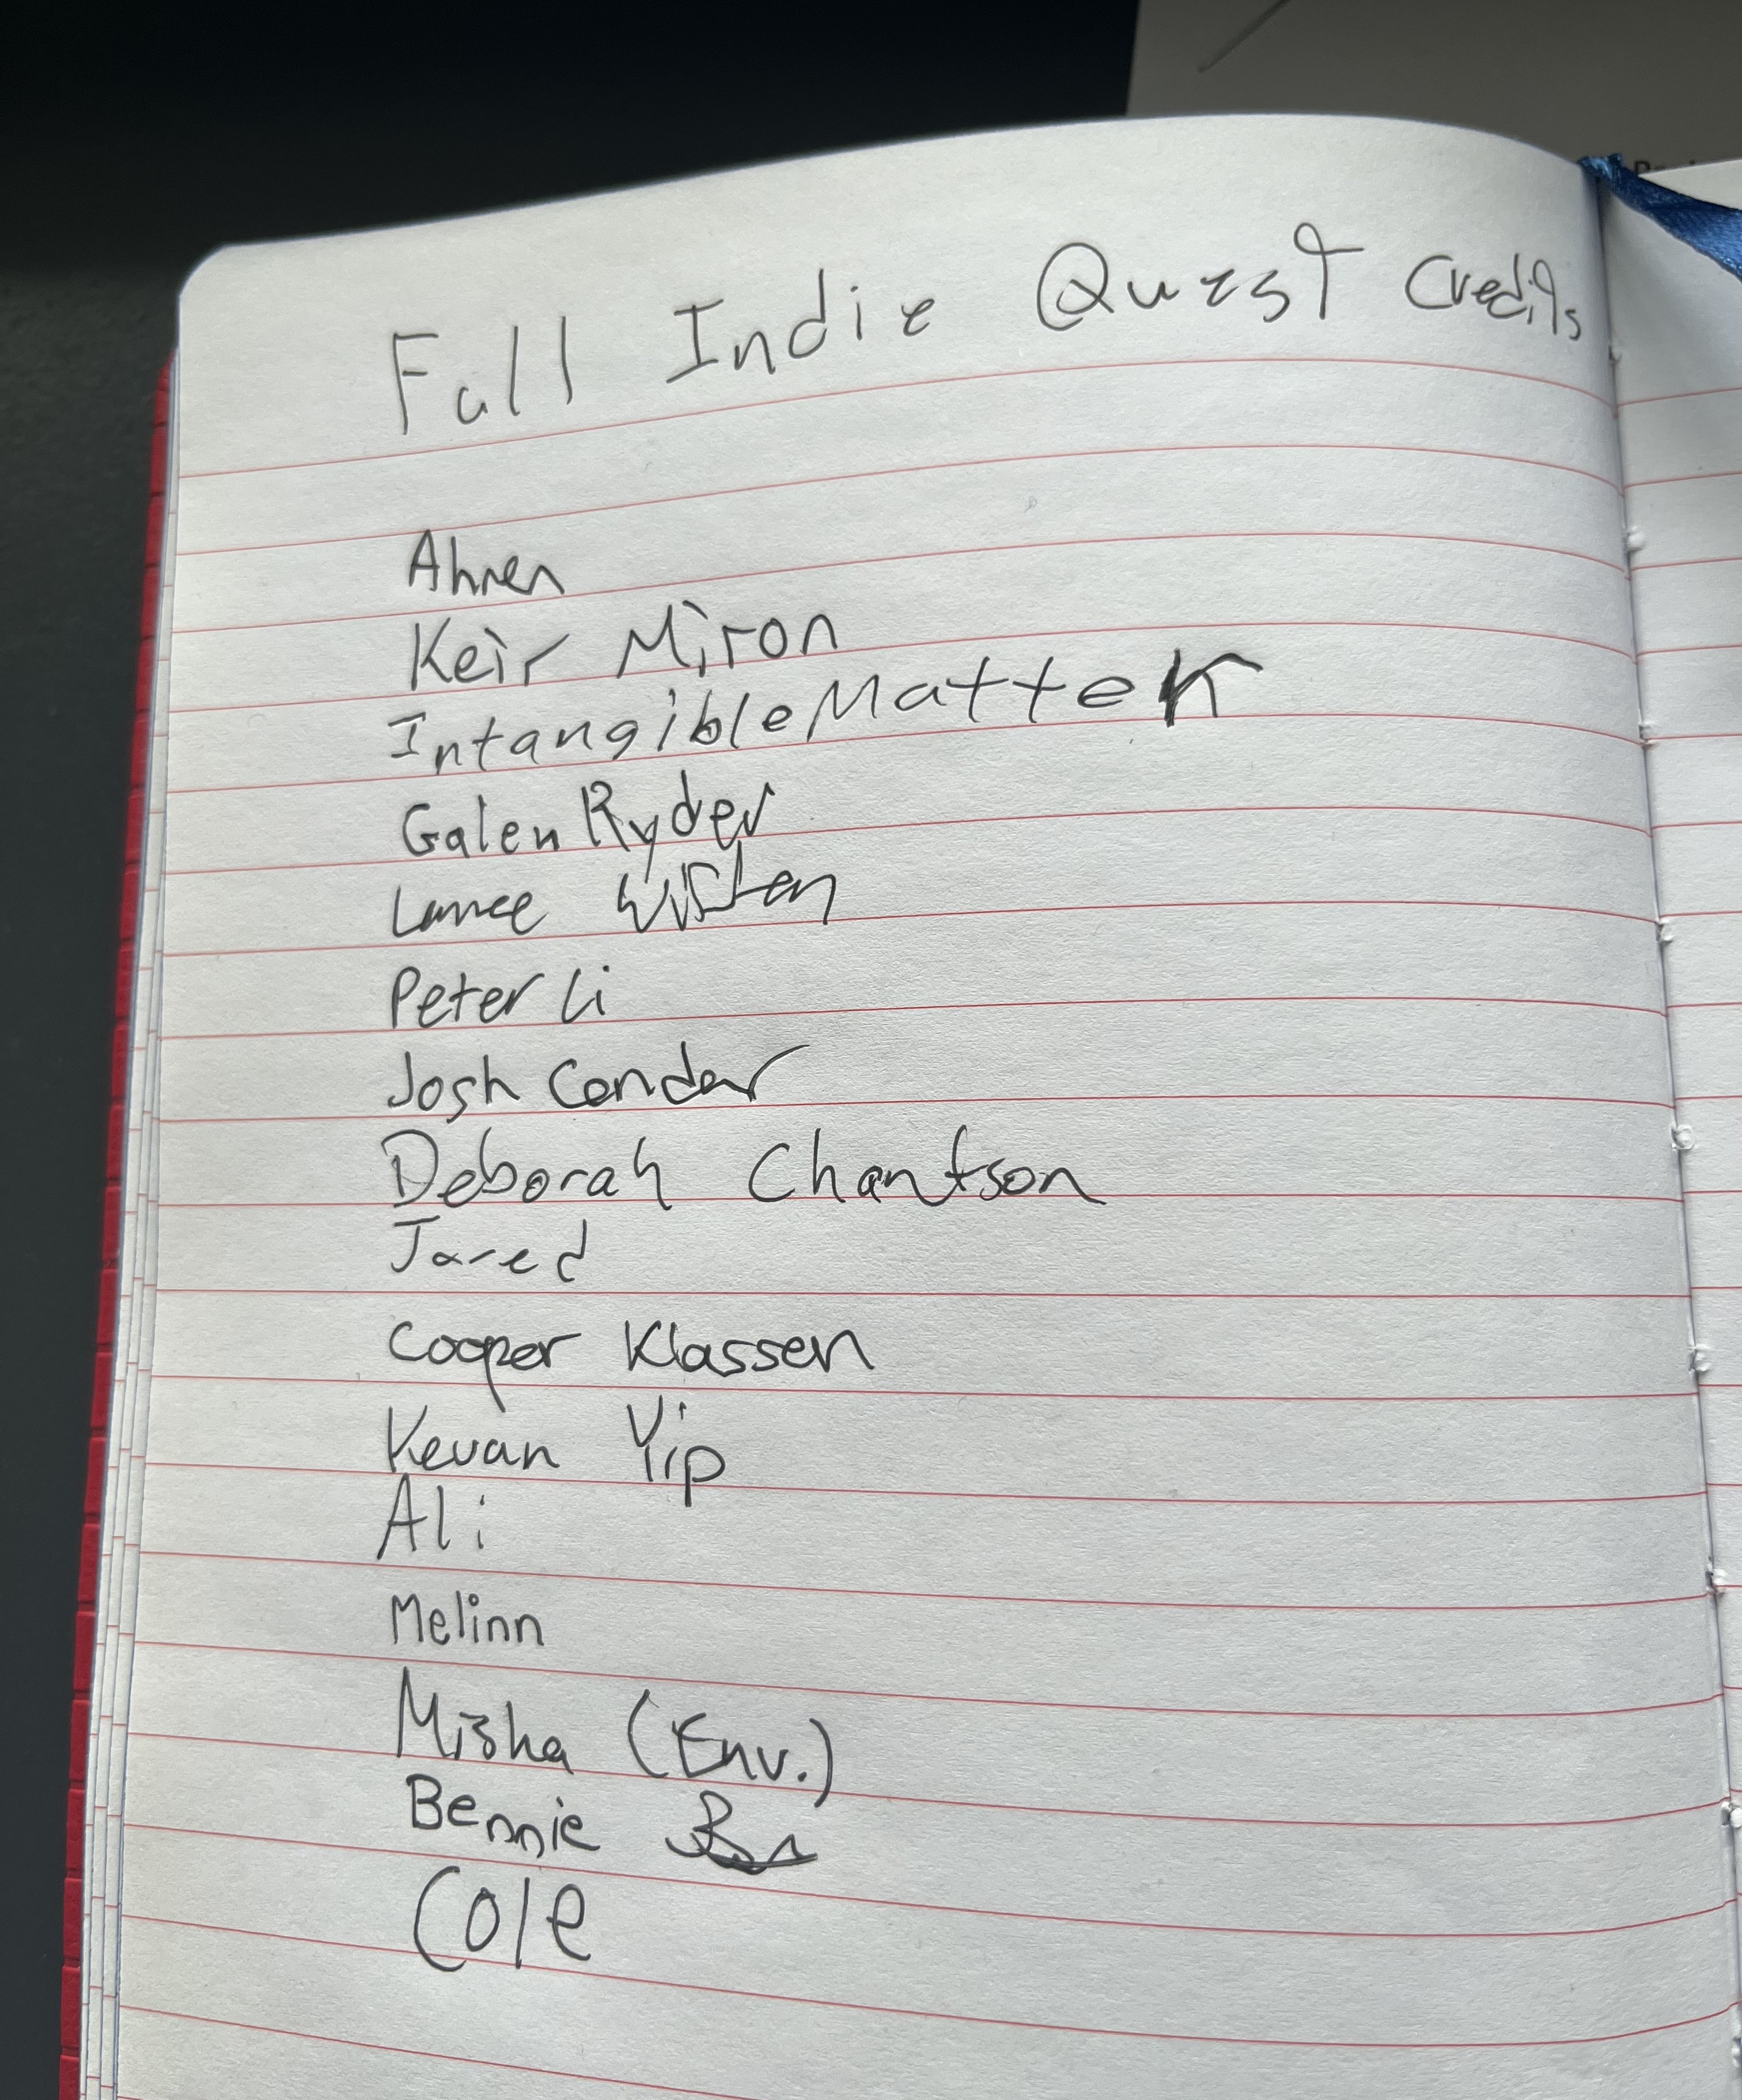 Fall Indie Quest Credits
Ahren
Keir Miron
IntangibleMatter
Galen Ryder
Lance
Peter Li
Josh Condor
Deborah Chantson
Jared
Cooper Klassen
Kevan Yip
Ali
Melinn
Misha (Env.)
Bennie
Cole